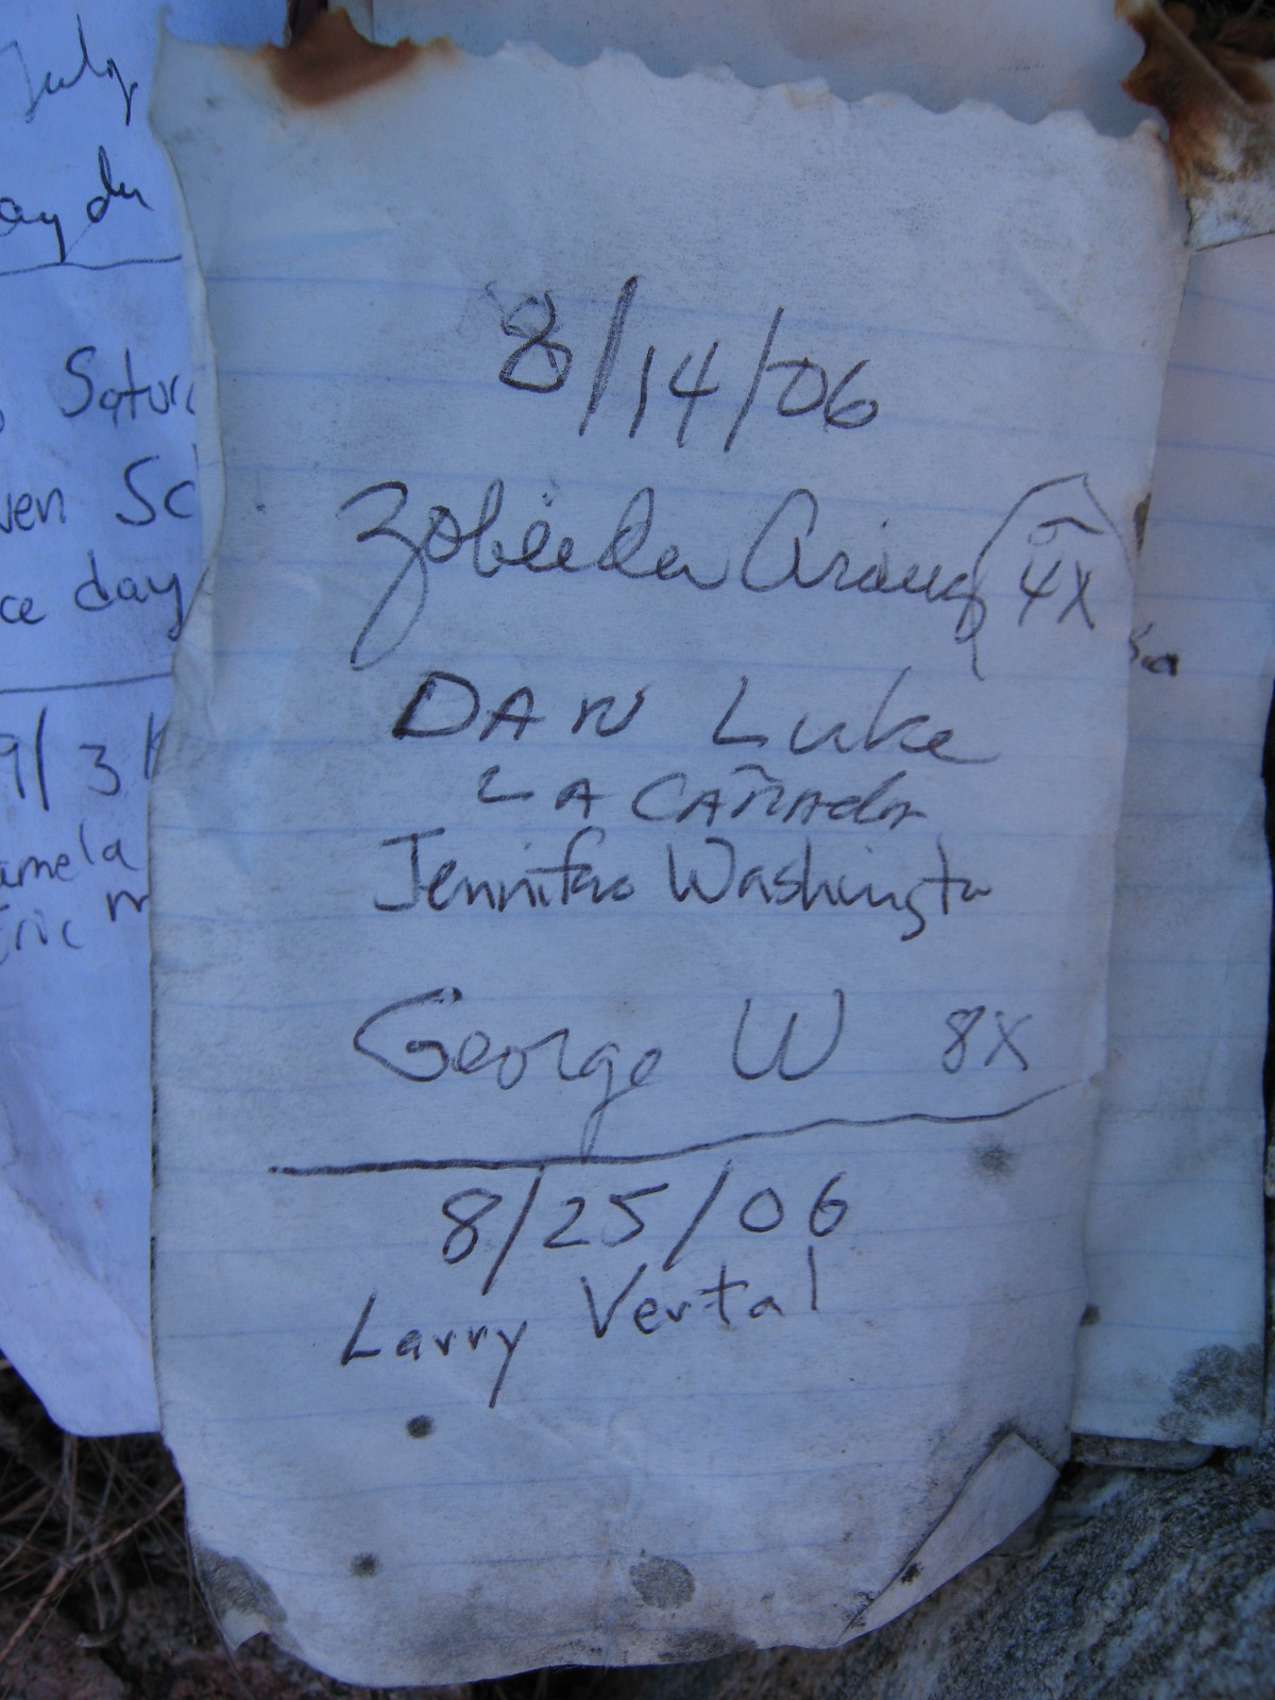 July
Satur
ven Sc
ce day
9/3
amela
Eric M
8/14/06
Zobeida 4X
DAN Luke
LA CAÑAda
Jennifer Washington
George W 8X
8/25/06
Larry Vertal